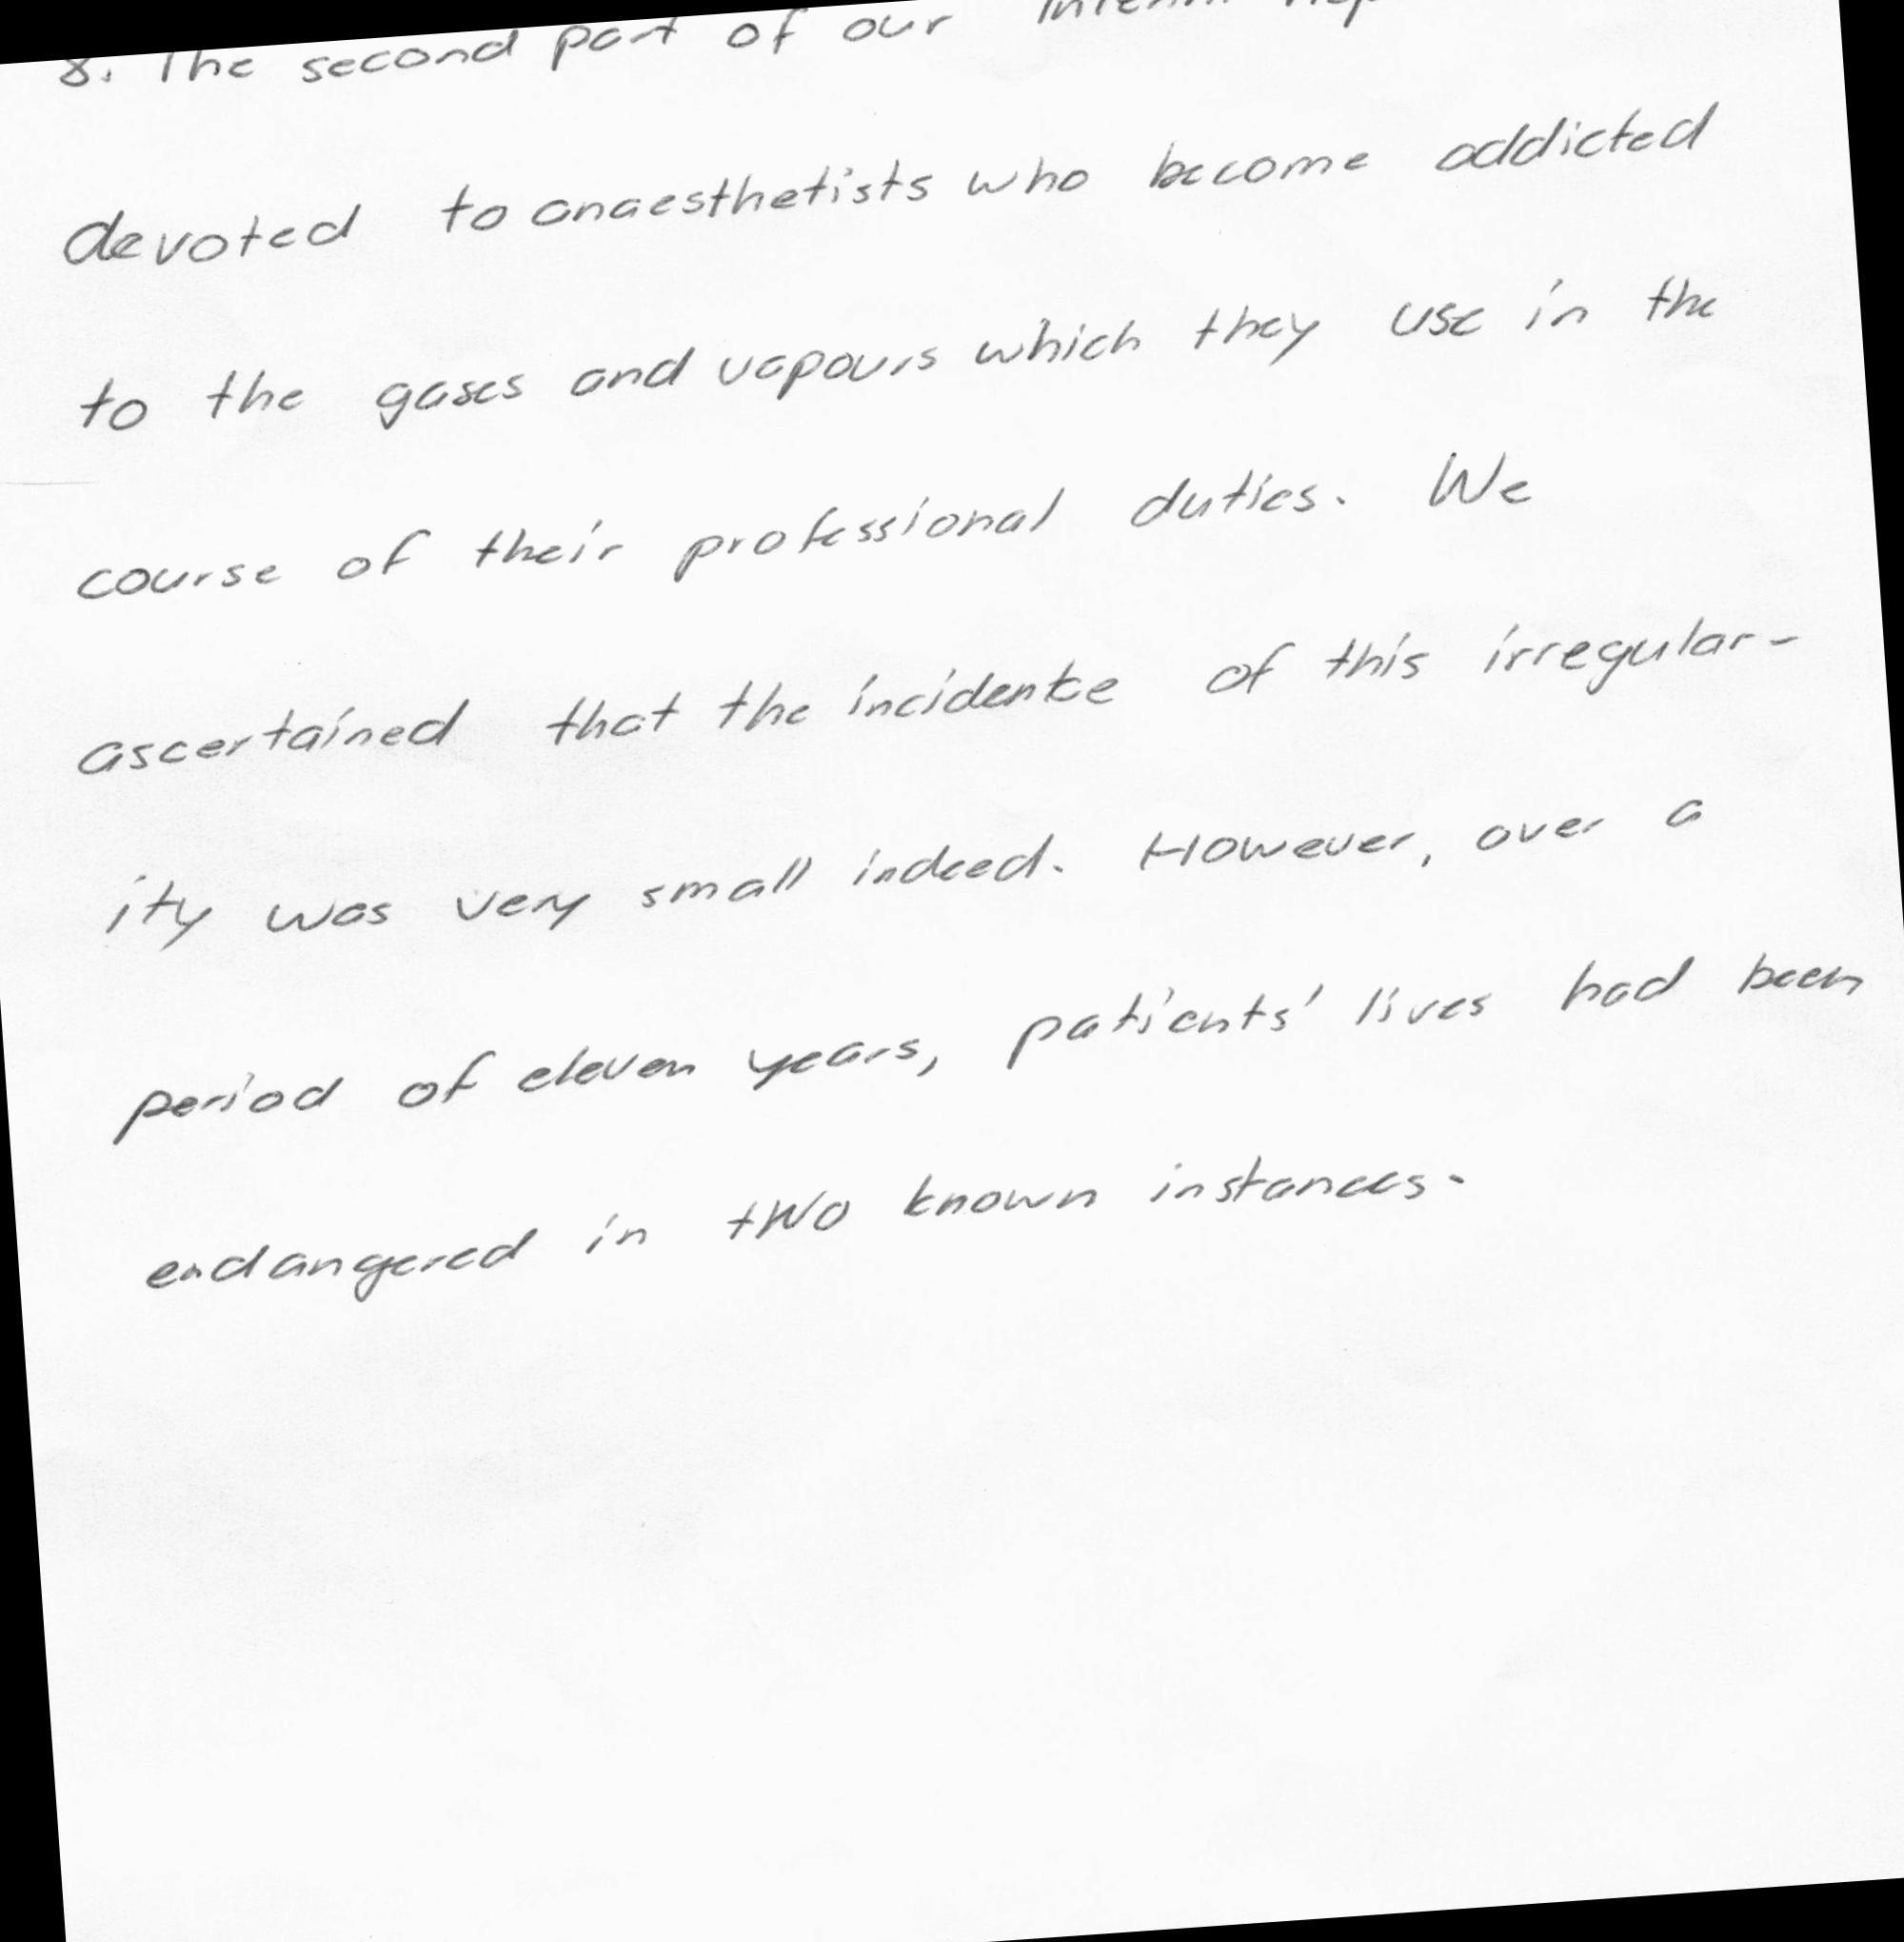 8. The second part of our Interim
devoted to anaesthetists who become addicted
to the gases and vapours which they use in the
course of their professional duties. We
ascertained that the incidence of this irregular-
ity was very small indeed. However, over a
period of eleven years, patients' lives had been
endangered in two known instances.